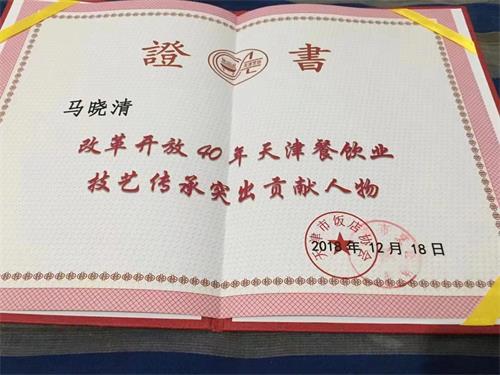 證書
马晓清
改革开放40年天津餐饮业
技艺传承突出贡献人物
天津市饭店协会
2018年12月18日